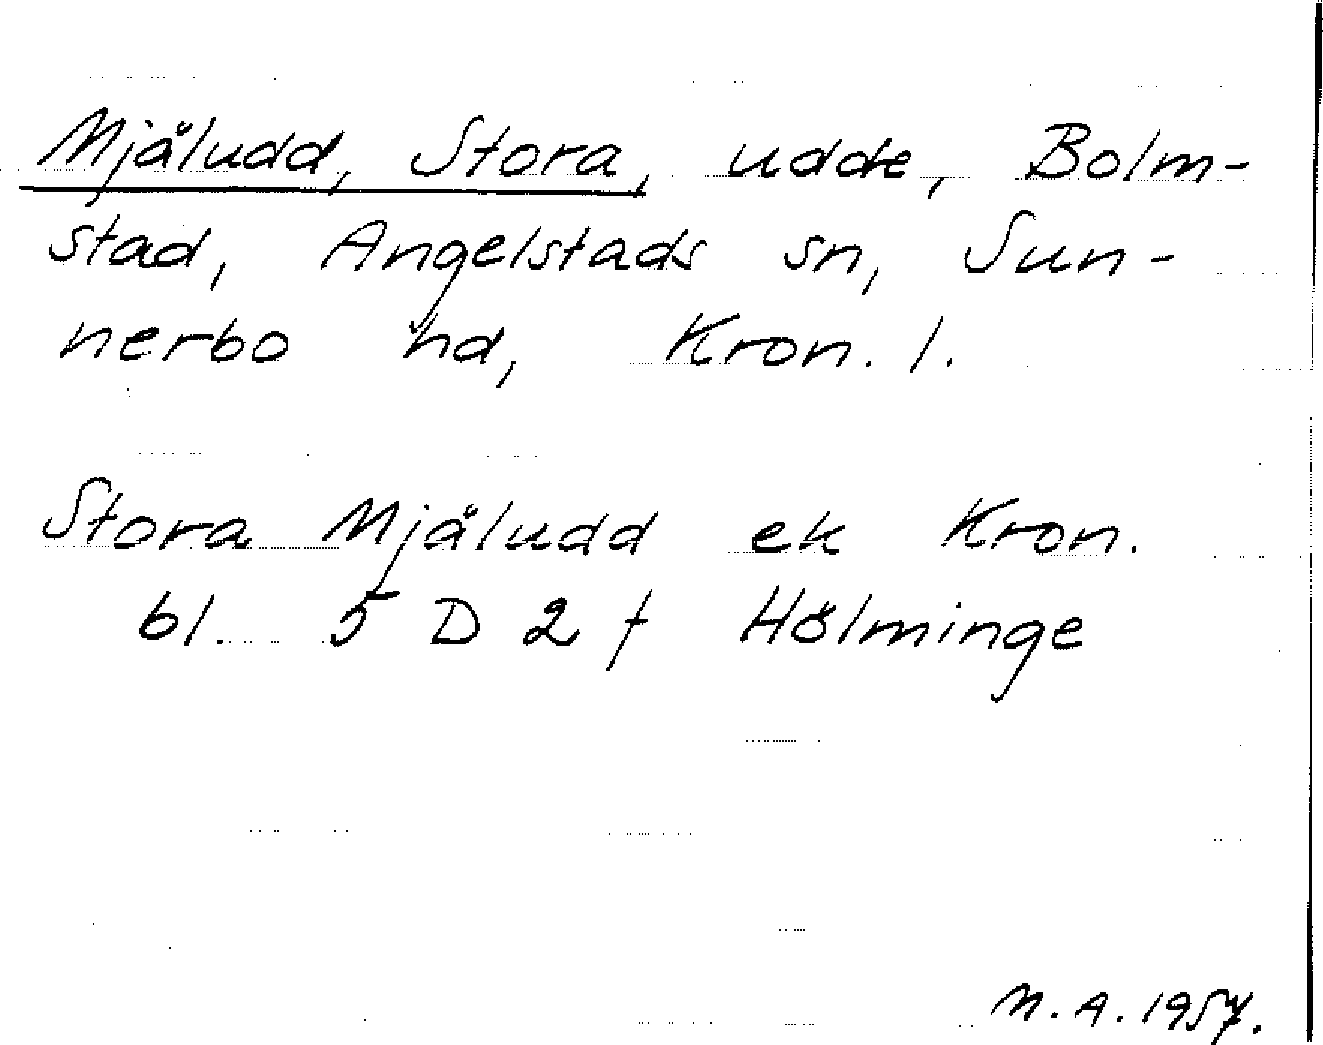 Mjåludd, Stora, udde, Bolm-
stad, Angelstads sn, Sun-
nerbo hd, Kron. l.
Stora Mjåludd ek Kron.
bl. 5 D 2 f Hölminge
M.A. 1957.